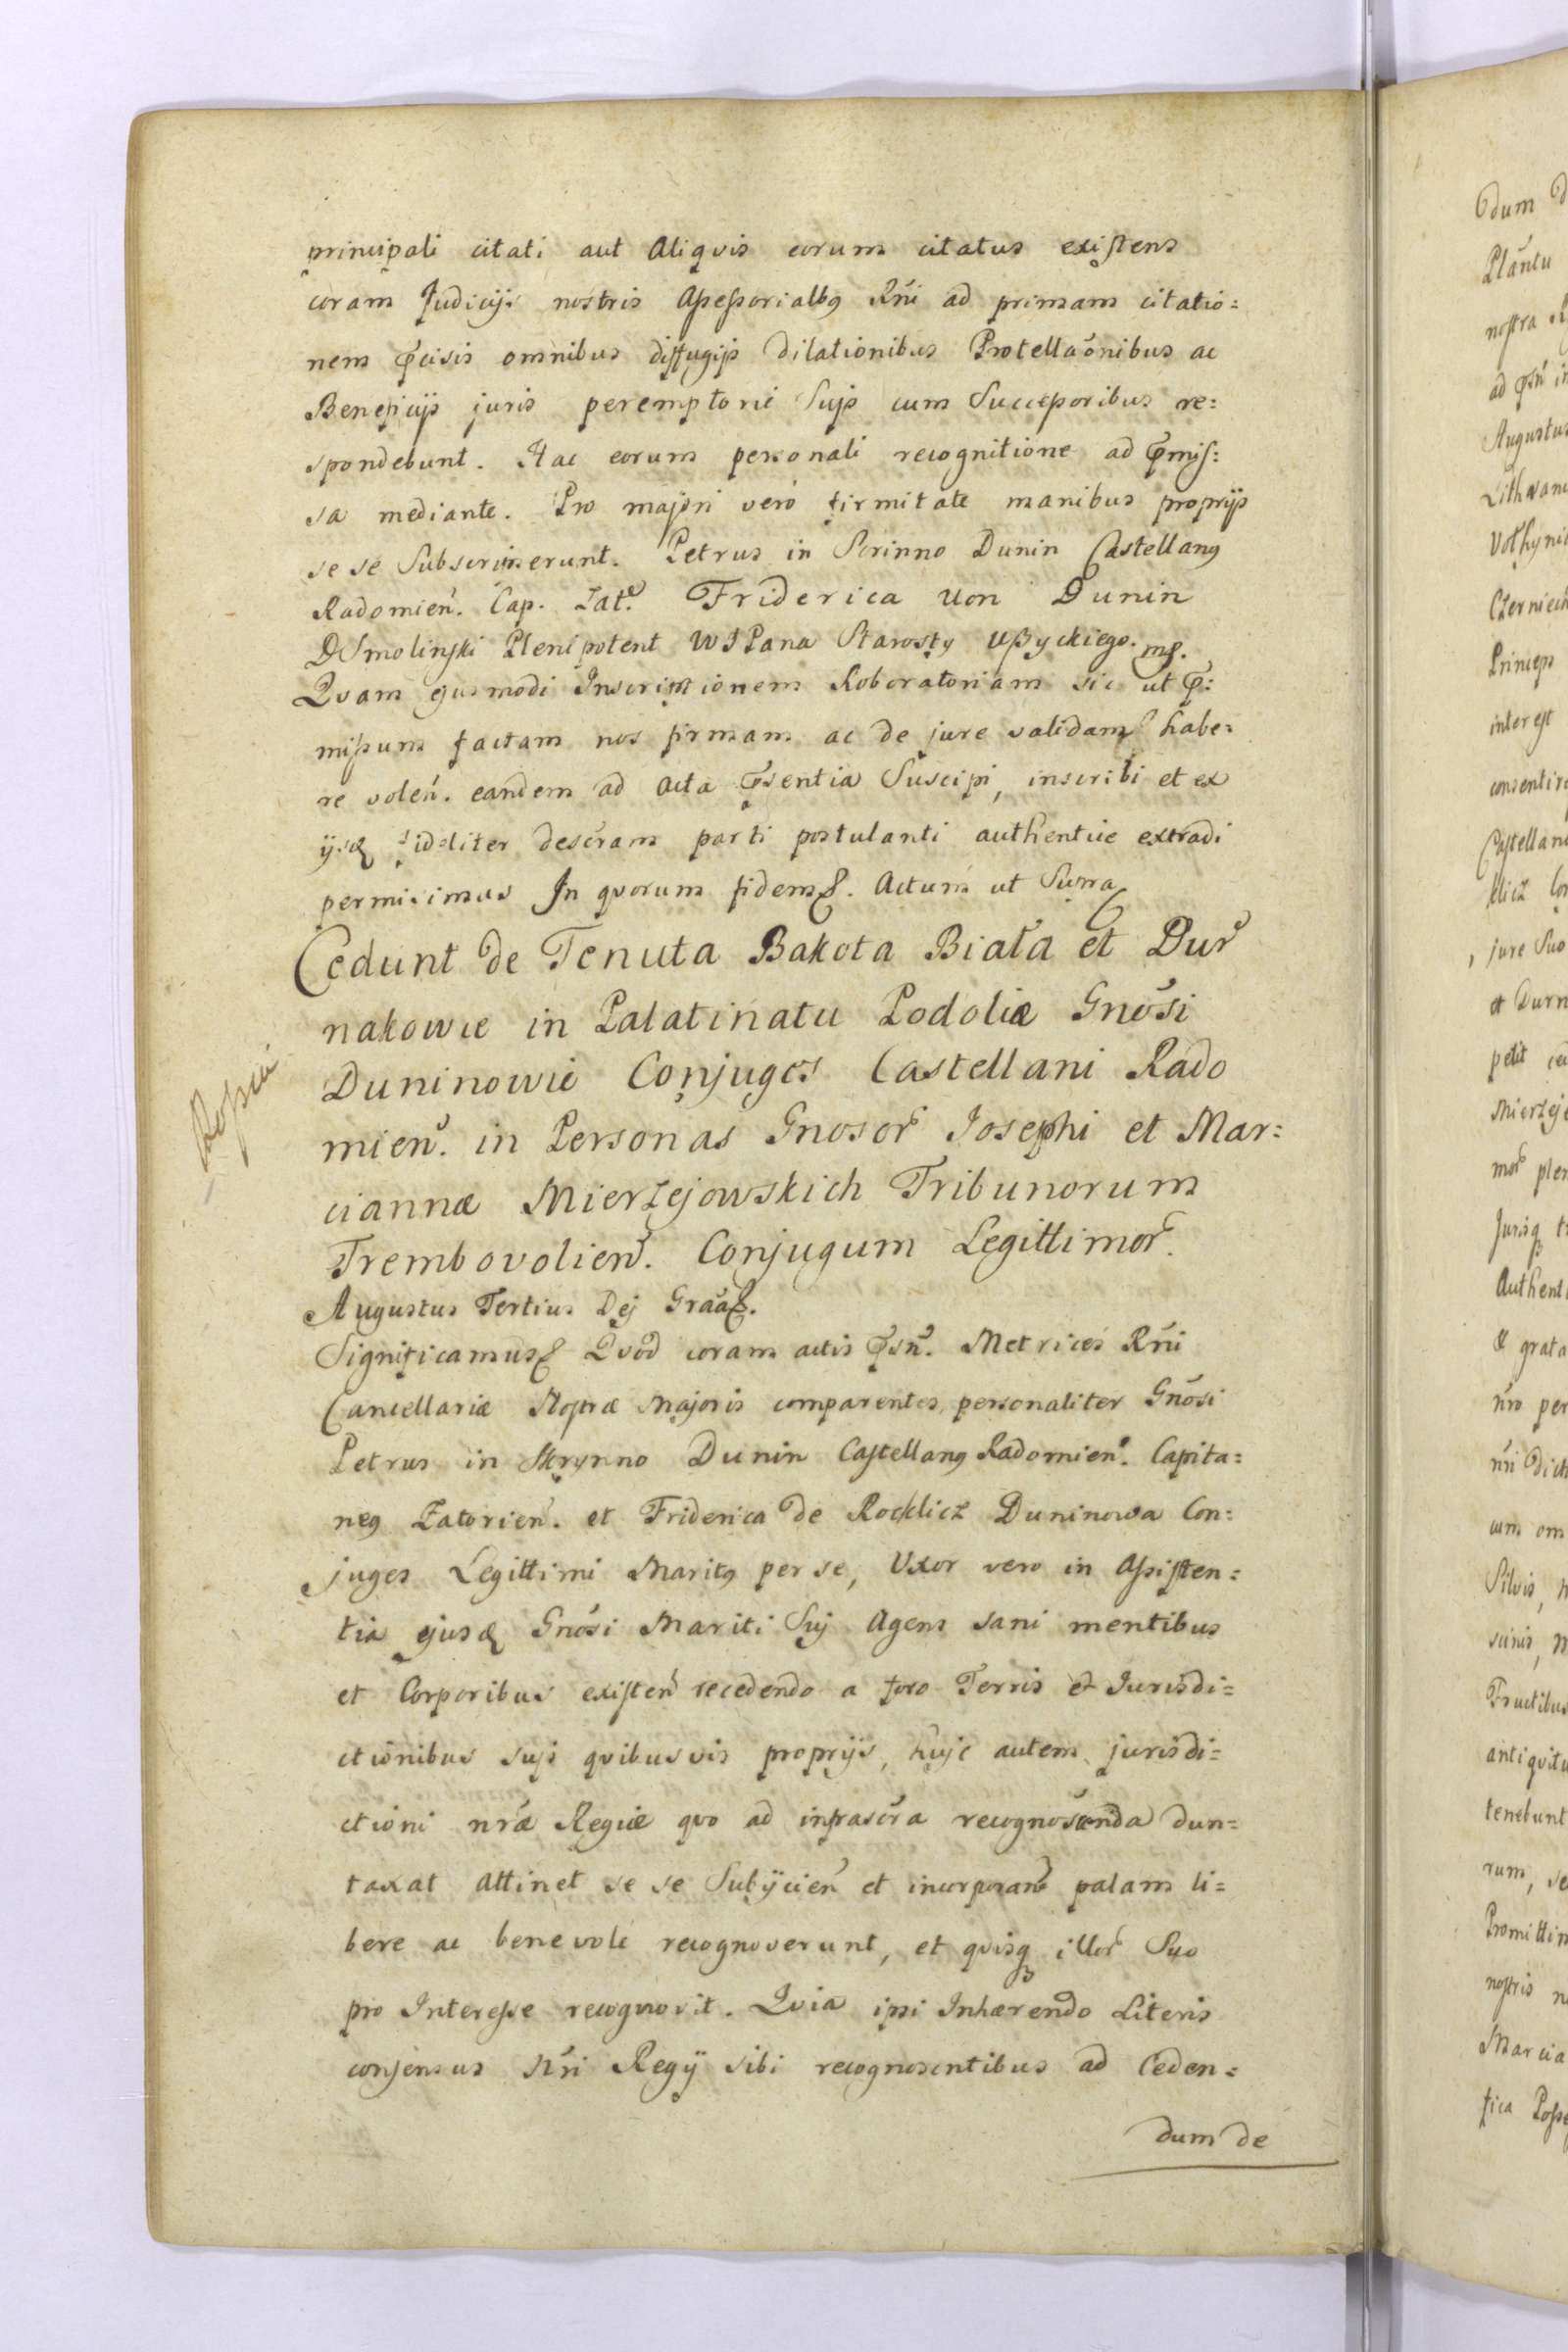 principali citati aut Aliqvis eorum citatus existens
coram Judicijs nostris Assessorialbq Rñi ad primam citatio=
nem p̃cisis omnibus diffugijs Dilationibus Protellaõnibus ac
Beneficijs juris peremptorie Suis cum Successoribus re=
spondebunt. Hac eorum personali recognitione ad p̃mis=
sa mediante. Pro majori vero firmitate manibus proprijs
se se Subscripserunt. Petrus in Scrinno Dunin Castellanq
Radomień. Cap. Zat. Friderica von Dunin
DSmolinski Plenipotent WJPana Starosty Ussyckiego. mp.
Qvam ejusmodi Inscriptionem Roboratoriam sic ut p̃=
missum factam nos firmam ac de jure validam habe=
re voleń. eandem ad acta p̃sentia Suscipi, inscribi et ex
ijsd fideliter descr̃am parti postulanti authentice extradi
permisimus In qvorum fidem. Actum ut Supra
Cedunt de Tenuta Bakota Biała et Dur
nakowie in Palatinatu Podoliæ Gnõsi
Duninowie Conjuges Castellani Rado
mień. in Personas Gnosor Josephi et Mar=
ciannæ Mierzejowskich Tribunorum
Trembovolień. Conjugum Legittimor.
Kopia
Augustus Tertius Dej Grãa.
Significamus Qvod coram actis p̃sñ. Metrices Rñi
Cancellariæ Nostræ Majoris comparentes personaliter Gnõsi
Petrus in Skrynno Dunin Castellanq Radomień. Capita=
neq Zatorień. et Friderica de Rocklicz Duninowa Con=
juges Legittimi Maritq per se, Uxor vero in Assisten=
tia ejusd Gnõsi Mariti Sui Agens sani mentibus
et Corporibus existeñ recedendo a foro Terris et Jurisdi=
ctionibus suis qvibusvis proprijs, huic autem jurisdi=
ctioni nr̃æ Regiæ qvo ad infrascr̃a recognoscenda dun=
taxat attinet se se Subijcień et incorporań palam li=
bere ac benevole recognoverunt, et qvisq illor Suo
pro Interesse recognovit. Qvia ipsi Inhærendo Literis
consensus Nr̃i Regij sibi recognoscentibus ad Ceden=
dum de